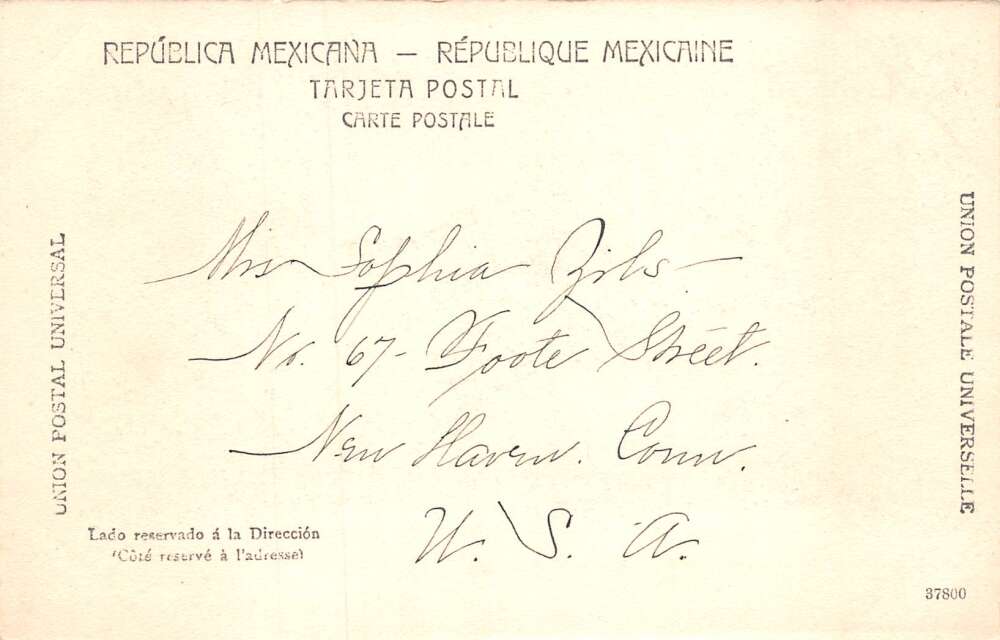 REPÚBLICA MEXICANA — RÉPUBLIQUE MEXICAINE
TARJETA POSTAL
CARTE POSTALE
UNION POSTAL UNIVERSAL
UNION POSTALE UNIVERSELLE
Miss Sophia Zils
No. 67- Foote Street.
New Haven. Conn.
U. S. A.
Lado reservado á la Dirección
(Côté reservé à l'adresse)
37800